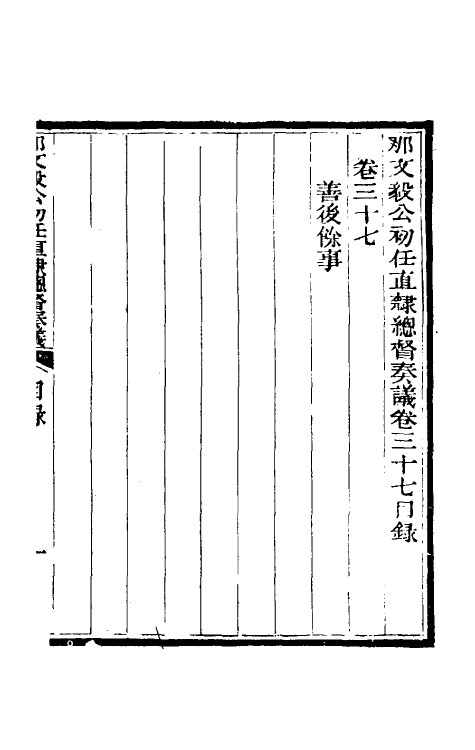 那文毅公初任直隸總督奏議卷三十七目錄
卷三十七
善後餘事
那文毅公初任直隸總督奏議
目錄
一